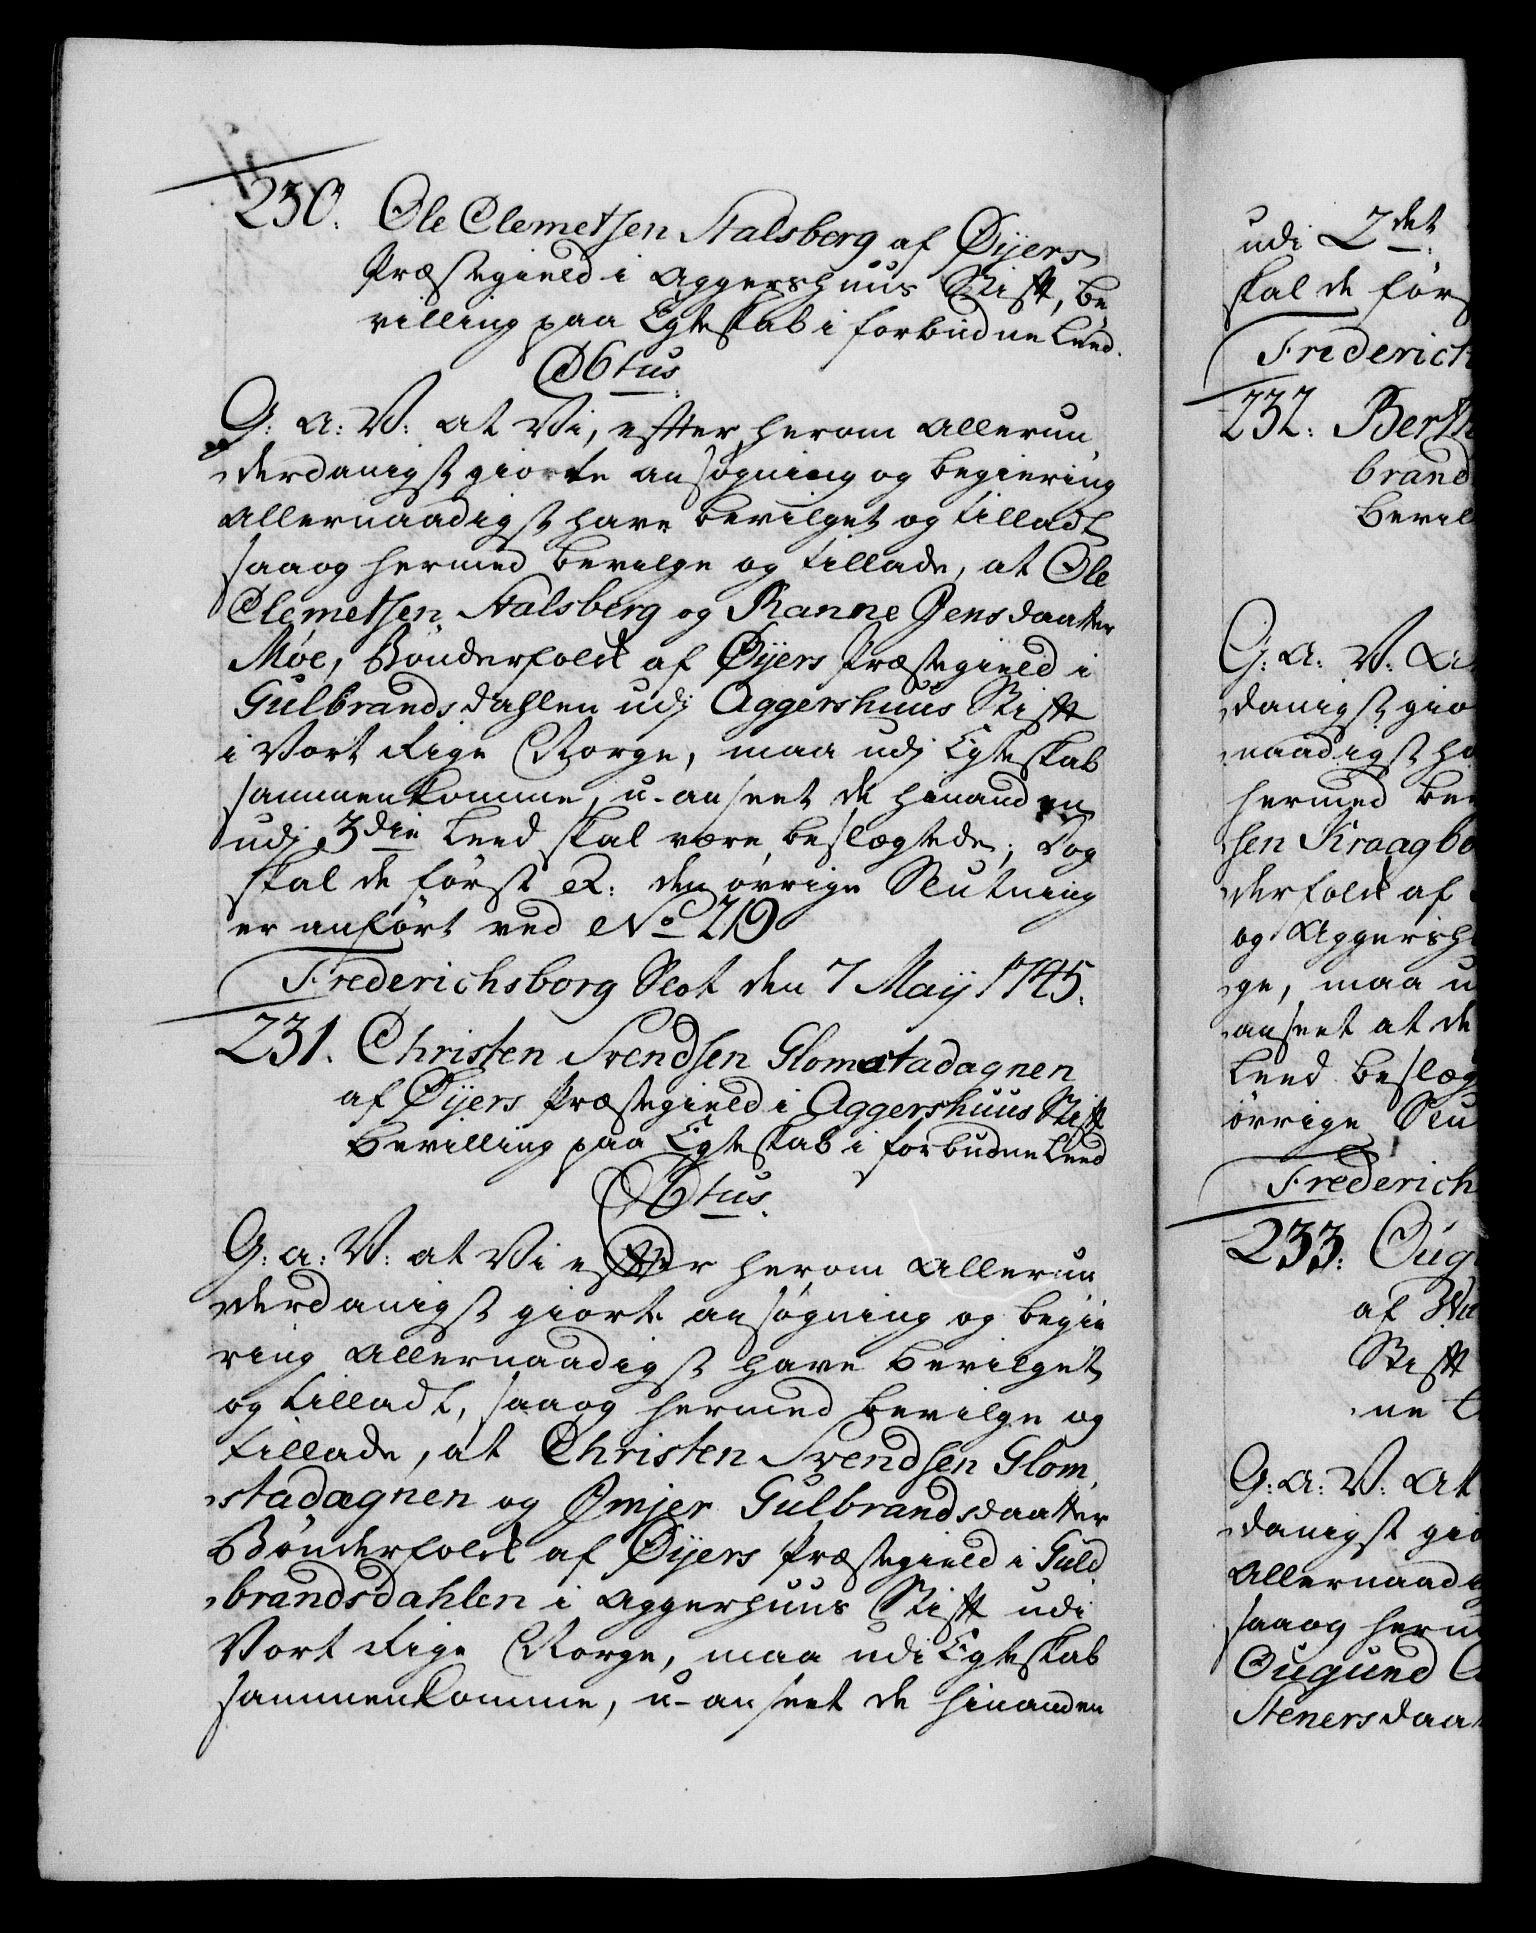 230. Ole Clemetsen Stalsberg af Øijers
Præstegield i Aggershuus Stift, Be
villing paa Egteskab i forbudne Leed.
Obtus.
G: A: V: at Vi, efter herom allerun
derdanigst giorte ansøgning og begiering
allernaadigst have bevilget og tilladt
saa og hermed bevilge og tillade, at Ole
Clemetsen Stalsberg og Ranne Jensdaatter
Møe, Bønderfolck af Øijers Præstegield i
Gulbrandsdahlen udj Aggershuus Stift
i Vort Rige Norge, maa udj Egteskab
sammenkomme, u-anseet de hinanden
udj 3die Leed skal være beslægtede; Dog
skal de først &: den øvrige Slutning
er anført ved No 219
Frederichsborg Slot den 7 Maij 1745.
231. Christen Svendsen Glomstadagnen
af Øijers Præstegield i Aggershuus Stift
Bevilling paa Egteskab i forbudne Leed
Obtus.
G: A: V: at Vi efter herom allerun
derdanigst giorte ansøgning og begie
ring allernaadigst have bevilget
og tilladt, saa og hermed bevilge og
tillade, at Christen Svendsen Glom
stadagnen og Ømjer Gulbrandsdaatter
Bønderfolck af Øijers Præstegield i Guld
brandsdahlen i Aggerhuus Stift udi
Vort Rige Norge, maa udi Egteskab
sammenkomme, u-anseet de hinanden
udi 2det
skal de førs
Frederich
232. Berth
brand
Bevil
G: A: V: A
danigst gio
naadigst ha
hermed be
sen Kraagbo
derfolck af
og Aggersh
ge, maa u
anseet at de
Leed beslæg
øvrige Slu
Frederich
233. Oug
af
Stift
ne L
G: A: V: At
danigst gio
Allernaadi
saa og herm
Ougund
Stenersdaa